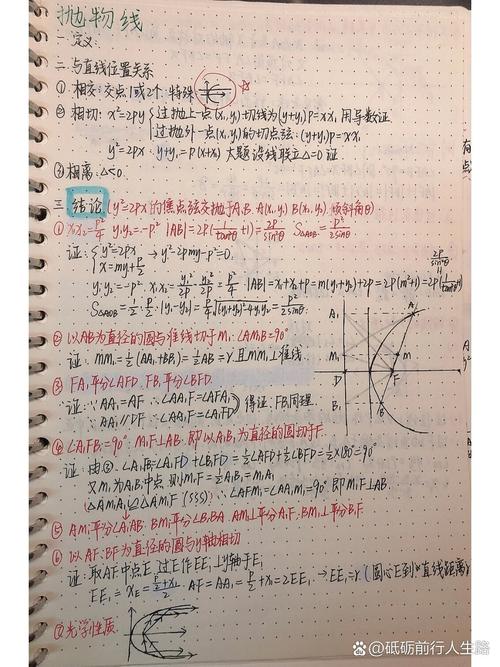 抛物线
一.定义
二.与直线位置关系
① 相交:交点1或2个.特殊
② 相切: x²=2py { 过抛上一点(x₁,y₁)切线为(y+y₁)p=xx₁ 用导数证
过抛外一点(x₁,y₁)的切点弦:(y+y₁)p=xx₁
y²=2px: y·y₁=p(x+x₁) 大题设线联立△=0证
③ 相离:△<0.
三.结论 (y²=2px的焦点弦交抛于A,B. A(x₁,y₁) B(x₂,y₂) 倾斜角θ)
① x₁x₂=p²/4 y₁y₂=-p² |AB|=2p(1/tan²θ+1)=2p/sin²θ S△AOB=p²/2sinθ
证: { y²=2px
x=my+p/2 → y²-2pmy-p²=0.
y₁y₂=-p² x₁x₂=y₁²/2p·y₂²/2p=p²/4 |AB|=x₁+x₂+p=m(y₁+y₂)+2p=2p(m²+1)=2p(1/tan²θ+1)
2p/sin²θ
S△AOB=1/2·p/2·|y₁-y₂|=p/4√(y₁+y₂)²-4y₁y₂=p²/2sinθ
② 以AB为直径的圆与准线切于M₁ ∠AM₁B=90°
证: MM₁=1/2(AA₁+BB₁)=1/2AB=r 且MM₁⊥准线
③ FA₁平分∠AFD. FB₁平分∠BFD.
证: ∵AA₁=AF ∴∠AA₁F=∠AFA₁
∵AA₁∥DF ∴∠AA₁F=∠A₁FD } 得证.FB₁同理
④ ∠A₁FB₁=90° M₁F⊥AB. 即以A₁B₁为直径的圆切于F
证: 由③.∠A₁FB₁=∠A₁FD+∠B₁FD=1/2∠AFD+1/2∠BFD=1/2×180°=90°
又M₁为A₁B₁中点 则M₁F=1/2A₁B₁=M₁A₁
△AM₁A₁≌△AM₁F (SSS) ∴∠AFM₁=∠AA₁M₁=90° 即M₁F⊥AB.
⑤ AM₁平分∠A₁AB. BM₁平分∠B₁BA AM₁⊥平分A₁F. BM₁⊥平分B₁F
⑥ 以AF.BF为直径的圆与y轴相切
证: 取AF中点E 过E作EE₁⊥y轴于E₁
EE₁=x_E=(p/2+x₁)/2. AF=AA₁=p/2+x₁=2EE₁ → EE₁=r (圆心E到直线距离)
⑦ 光学性质.
A₁
A
M₁
M
D
F
B₁
B
有
点
@砥砺前行人生路